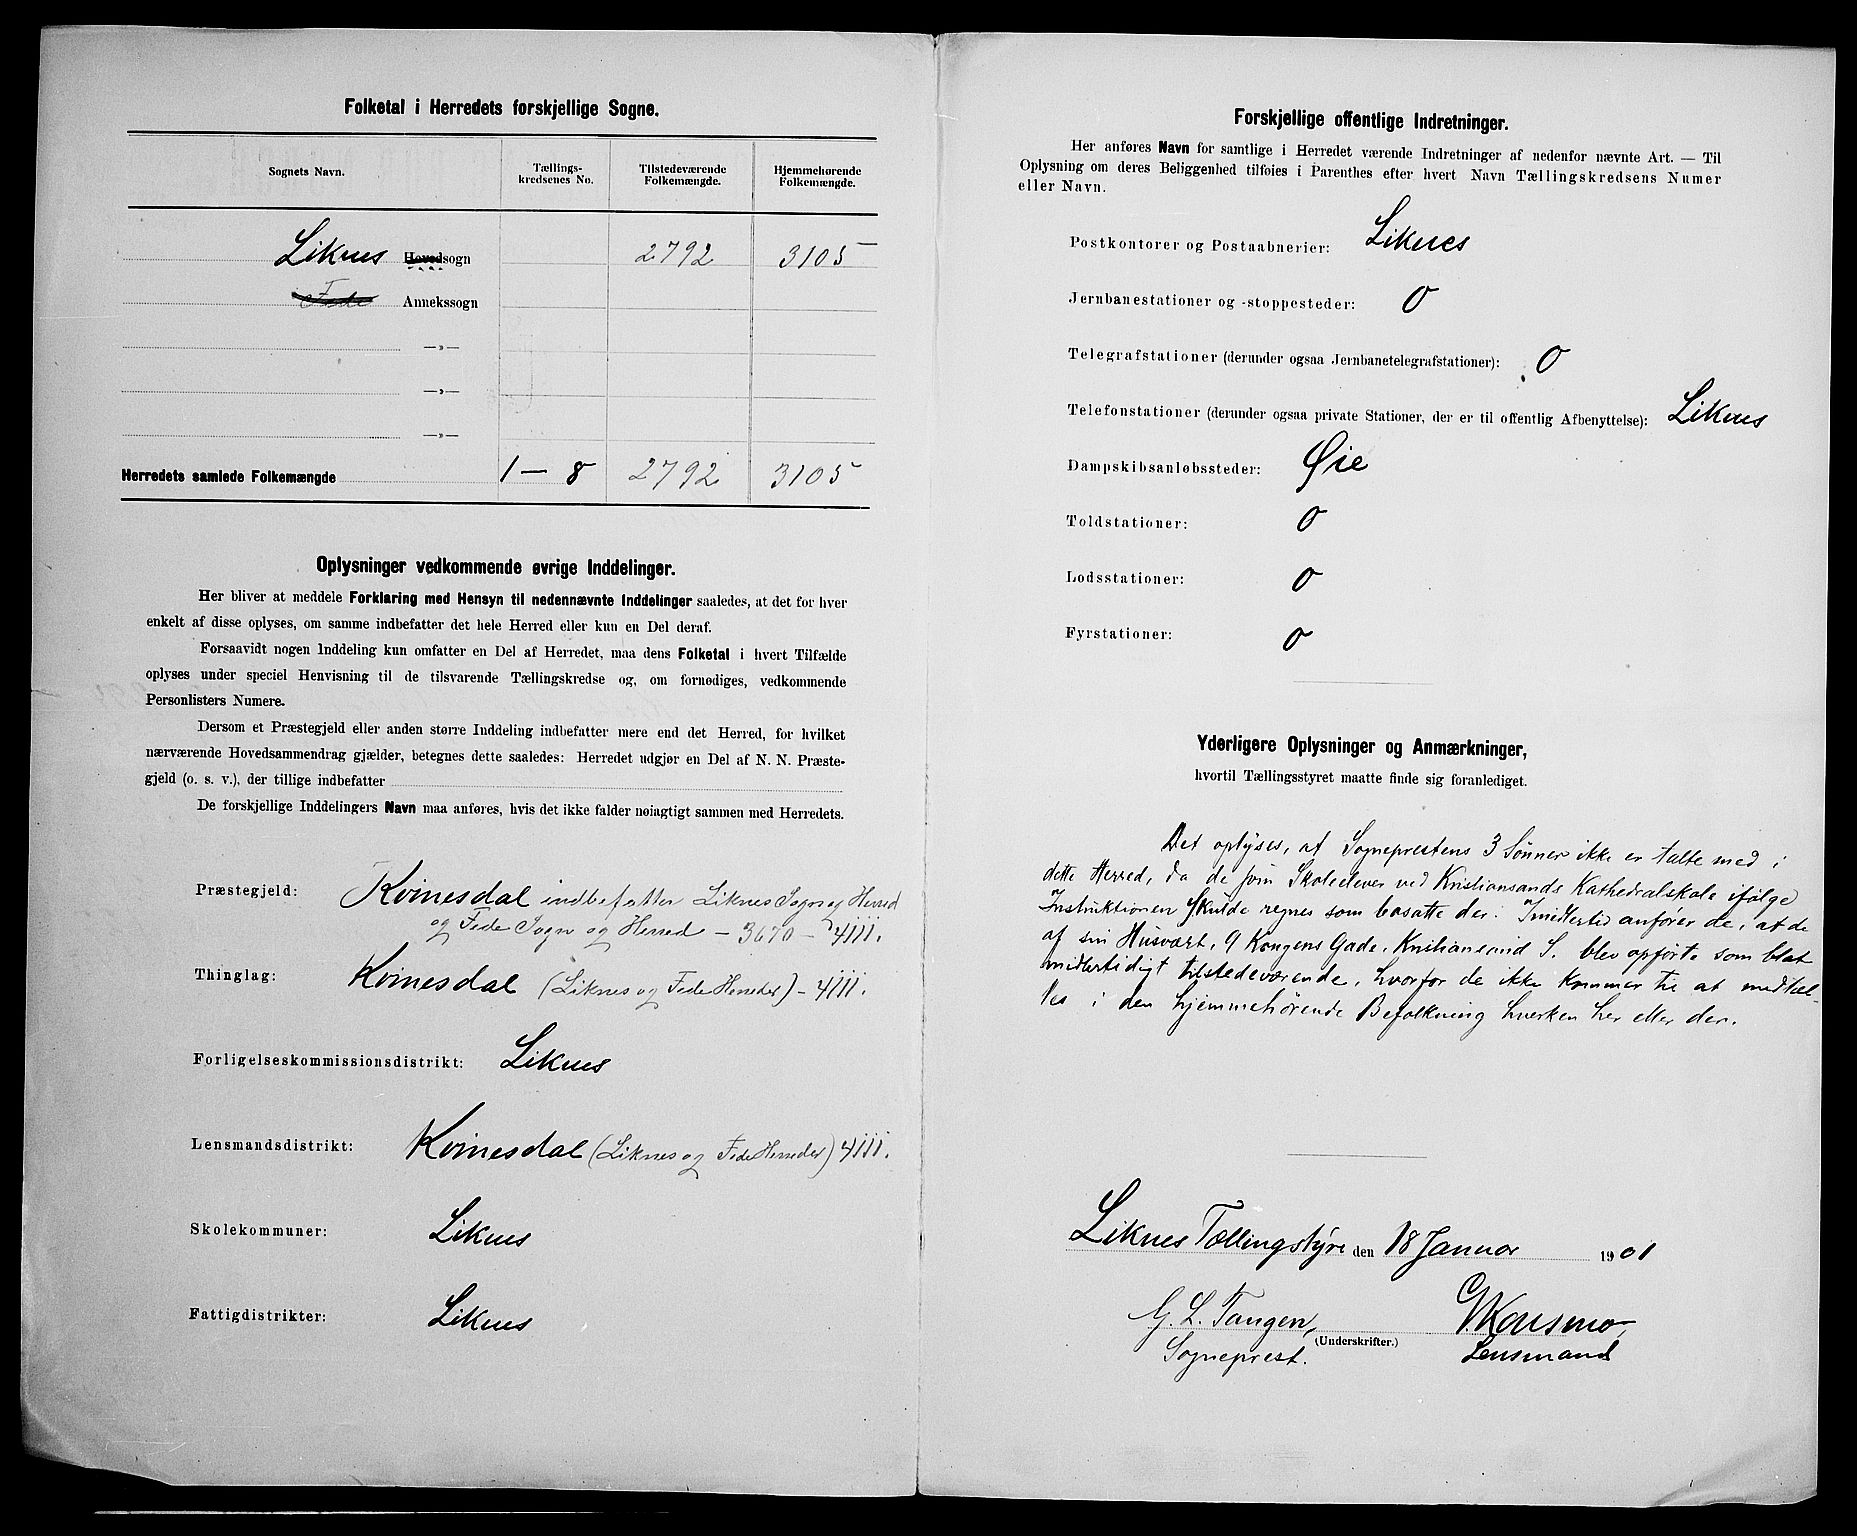 Folketal i Herredets forskjellige Sogne.
Sognets Navn. Tællings-kredsenes No. Tilstedeværende Folkemængde. Hjemmehørende Folkemængde.
Liknes Hovedsogn 2792 3105
Fede Annekssogn
—»—
—»—
—»—
Herredets samlede Folkemængde 1 — 8 2792 3105
Oplysninger vedkommende øvrige Inddelinger.
Her bliver at meddele Forklaring med Hensyn til nedennævnte Inddelinger saaledes, at det for hver
enkelt af disse oplyses, om samme indbefatter det hele Herred eller kun en Del deraf.
Forsaavidt nogen Inddeling kun omfatter en Del af Herredet, maa dens Folketal i hvert Tilfælde
oplyses under speciel Henvisning til de tilsvarende Tællingskredse og, om fornødiges, vedkommende
Personlisters Numere.
Dersom et Præstegjeld eller anden større Inddeling indbefatter mere end det Herred, for hvilket
nærværende Hovedsammendrag gjælder, betegnes dette saaledes: Herredet udgjør en Del af N. N. Præste-
gjeld (o. s. v.), der tillige indbefatter
De forskjellige Inddelingers Navn maa anføres, hvis det ikke falder nøiagtigt sammen med Herredets.
Præstegjeld: Kvinesdal indbefatter Liknes Sogn og Herred
og Fede Sogn og Herred — 3670 — 4111.
Thinglag: Kvinesdal (Liknes og Fede Herreder) — 4111.
Forligelseskommissionsdistrikt: Liknes
Lensmandsdistrikt: Kvinesdal (Liknes og Fede Herreder) 4111.
Skolekommuner: Liknes
Fattigdistrikter: Liknes
Forskjellige offentlige Indretninger.
Her anføres Navn for samtlige i Herredet værende Indretninger af nedenfor nævnte Art. — Til
Oplysning om deres Beliggenhed tilføies i Parenthes efter hvert Navn Tællingskredsens Numer
eller Navn.
Postkontorer og Postaabnerier: Liknes
Jernbanestationer og -stoppesteder: 0
Telegrafstationer (derunder ogsaa Jernbanetelegrafstationer): 0
Telefonstationer (derunder ogsaa private Stationer, der er til offentlig Afbenyttelse): Liknes
Dampskibsanløbssteder: Øie
Toldstationer: 0
Lodsstationer: 0
Fyrstationer: 0
Yderligere Oplysninger og Anmærkninger,
hvortil Tællingsstyret maatte finde sig foranlediget.
Det oplyses, at Sogneprestens 3 Sønner ikke er talte med i
dette Herred, da de som Skoleelever ved Kristiansands Kathedralskole ifølge
Instruktionen skulde regnes som bosatte der. Imidlertid anfører de, at de
af sin Husvært, 9 Kongens Gade, Kristiansand S. blev opførte som blot
midlertidigt tilstedeværende, hvorfor de ikke kommer til at medtæl-
les i den hjemmehørende Befolkning hverken her eller der.
Liknes Tællingstyre den 18 Januar 1901
G. L. Tangen, (Underskrifter.)
Sogneprest. Lensmand